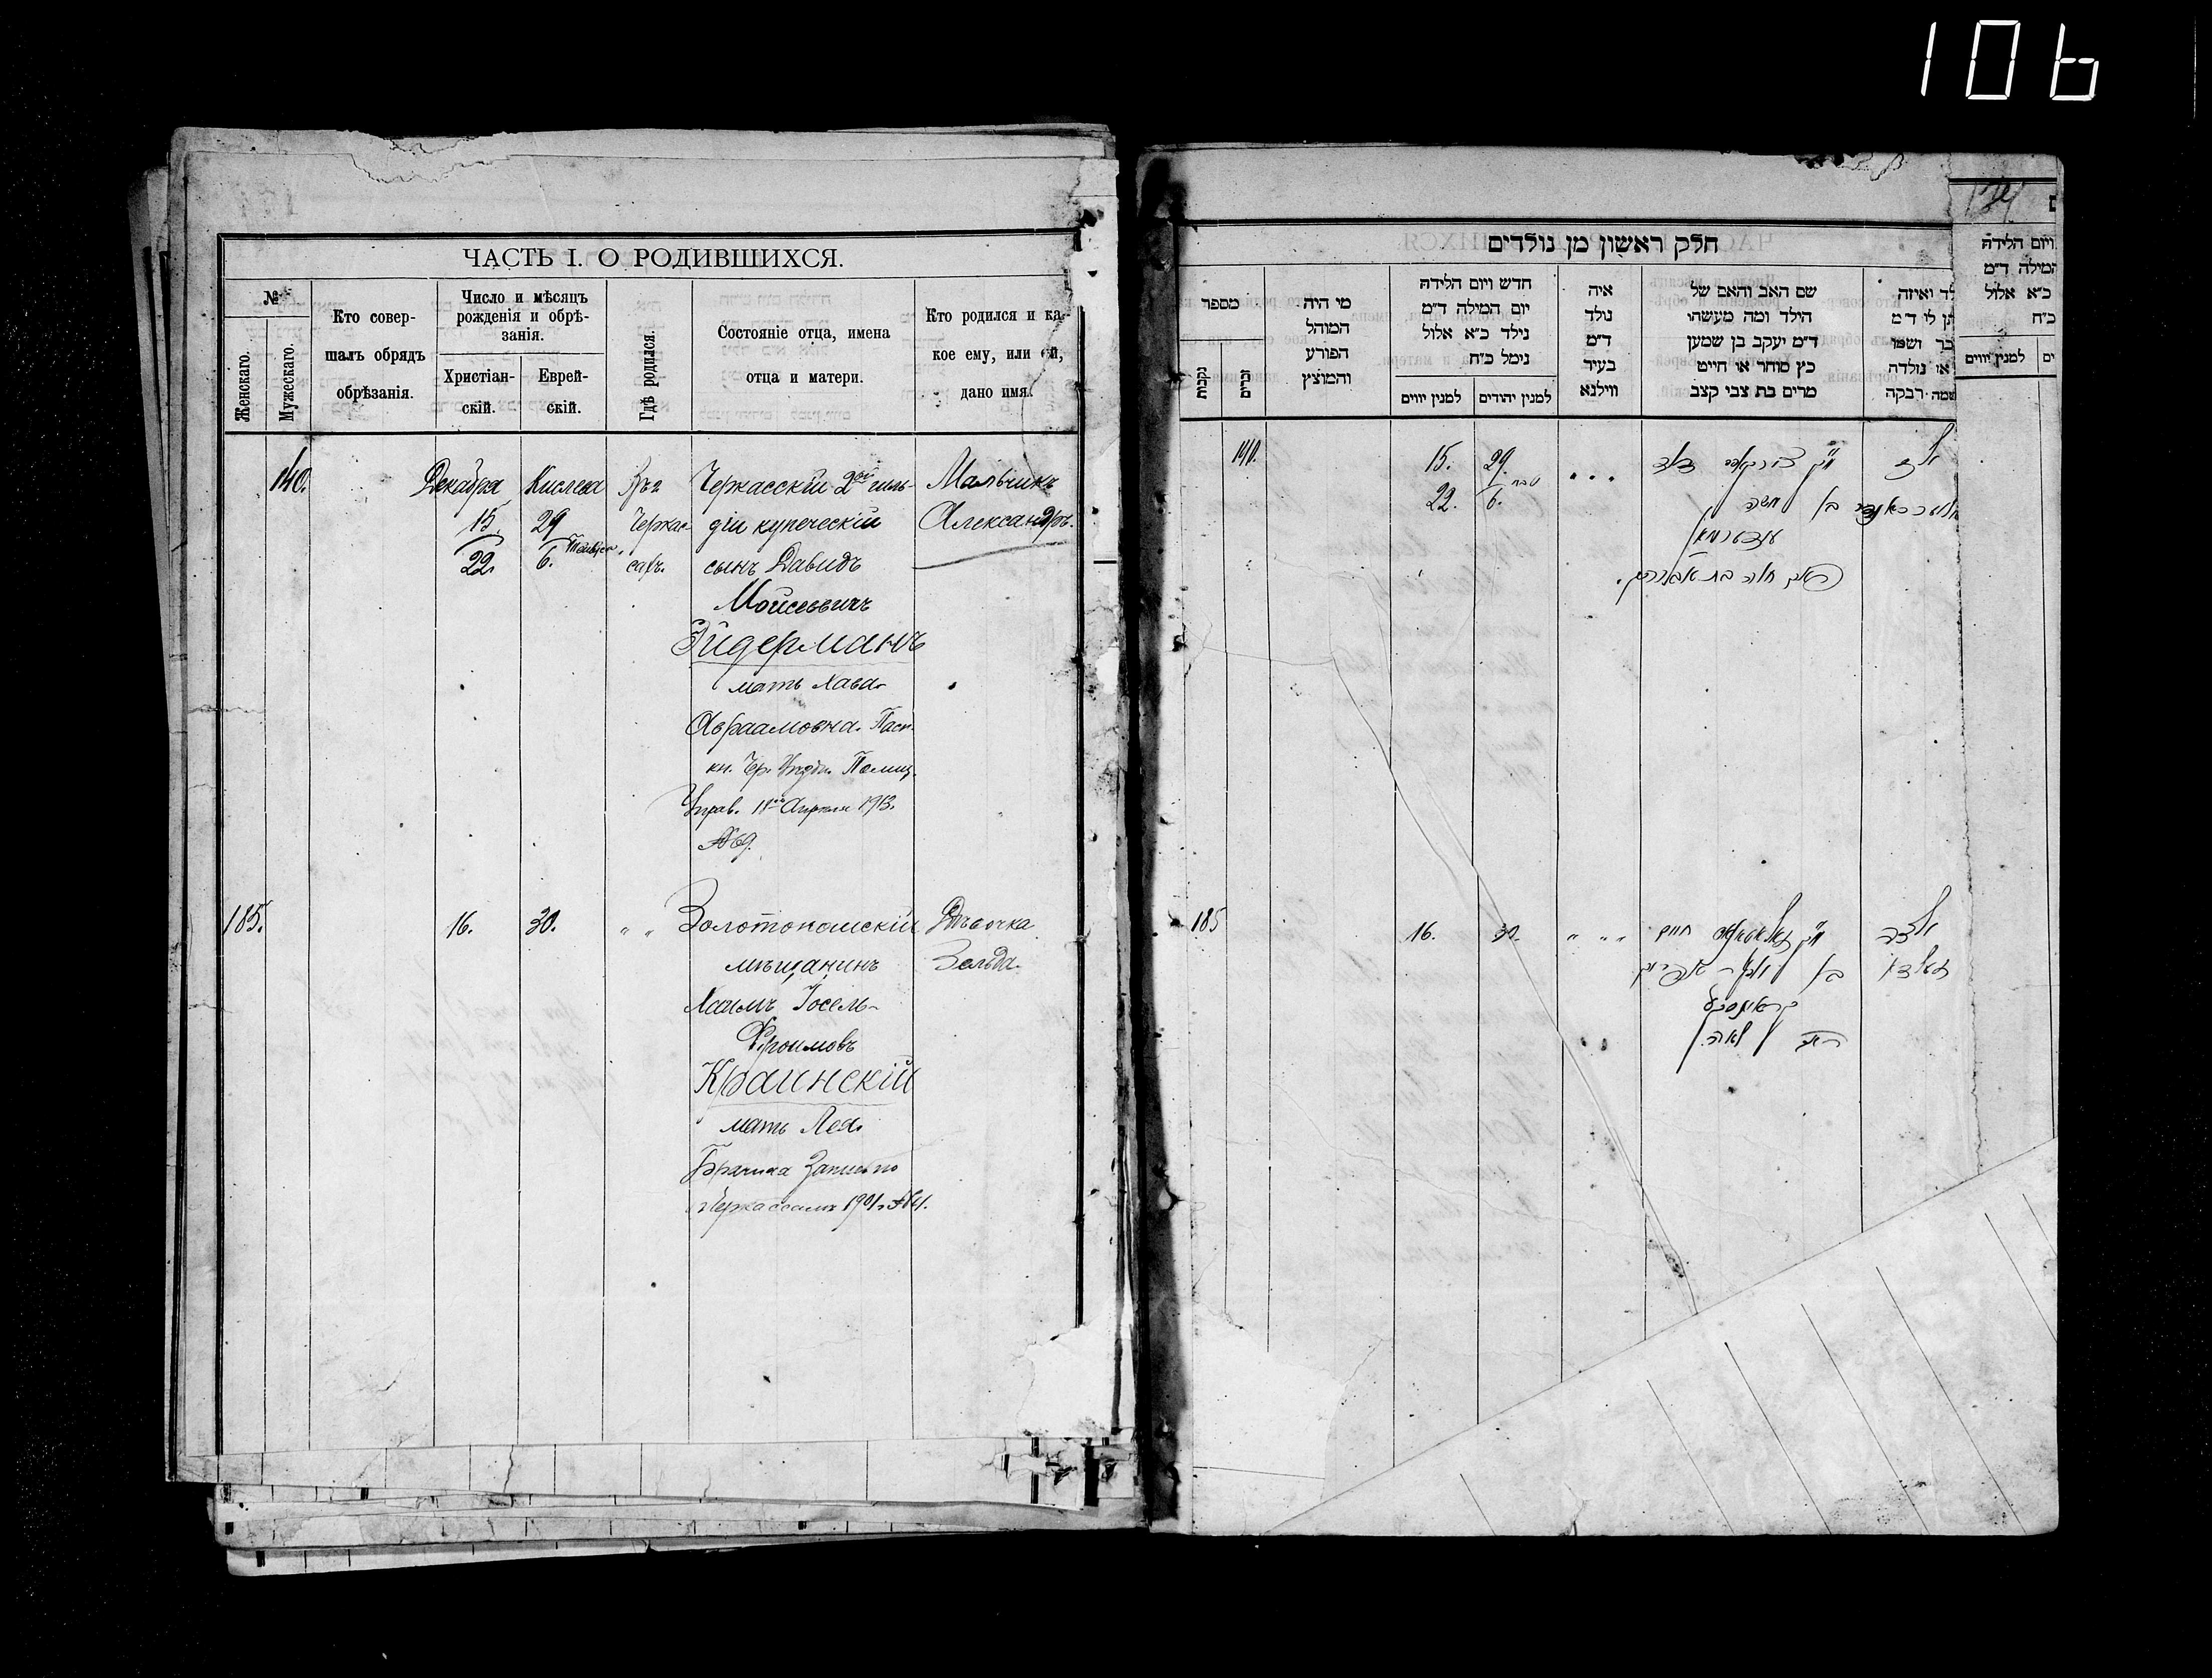 106
ЧАСТЬ I. О РОДИВШИХСЯ.
№
Женскаго.
Мужескаго.
Кто совер-
шалъ обрядъ
обрѣзанія.
Число и мѣсяцъ
рожденія и обрѣ-
занія.
Христіан-
скій.
Еврей-
скій.
Гдѣ родился.
Состояніе отца, имена
отца и матери.
Кто родился и ка-
кое ему, или ей,
дано имя.
140.
Декабря
15.
22.
Кислева
29
6.
Черкас-
сахъ.
Черкасскій 2ой гиль-
діи купеческій
сынъ Давидъ
Мойсеевичъ
Эйдерманъ
мать Хава
Авраамовна. Пасп.
кн. Чер. Уѣздн. Полиц.
Управ. 11го Апрѣля 1913.
№69.
Мальчикъ
Александръ.
185.
16.
30.
" "
Золотоношскій
мѣщанинъ
Хаимъ Іосель-
Фроимовъ
Краинскій
мать Лея
Брачная Запись по
Черкассамъ 1901 г. №41.
Дѣвочка
Зельда.
חלק ראשון מן נולדים
מספר
נקבות
זכרים
מי היה
המוהל
הפורע
והמוצץ
חדש ויום הלידה
יום המילה ד״מ
נילד כ״א אלול
נימל כ״ח
למנין יווים
למנין יהודים
איה
נולד
ד״מ
בעיר
ווילנא
שם האב והאם של
הילד ומה מעשהו
ד״מ יעקב בן שמען
כץ סוחר או חייט
מרים בת צבי קצב
לד ואיזה
תן לי ד״מ
בר ושמו
או נולדה
שמה רבקה
ויום הלידה
המילה ד״מ
כ״א אלול
כ״ח
למנין יווים
140.
15.
22.
29.
6.
" " "
בן משה
185
16.
30.
" " "
חיים
בן
לאה